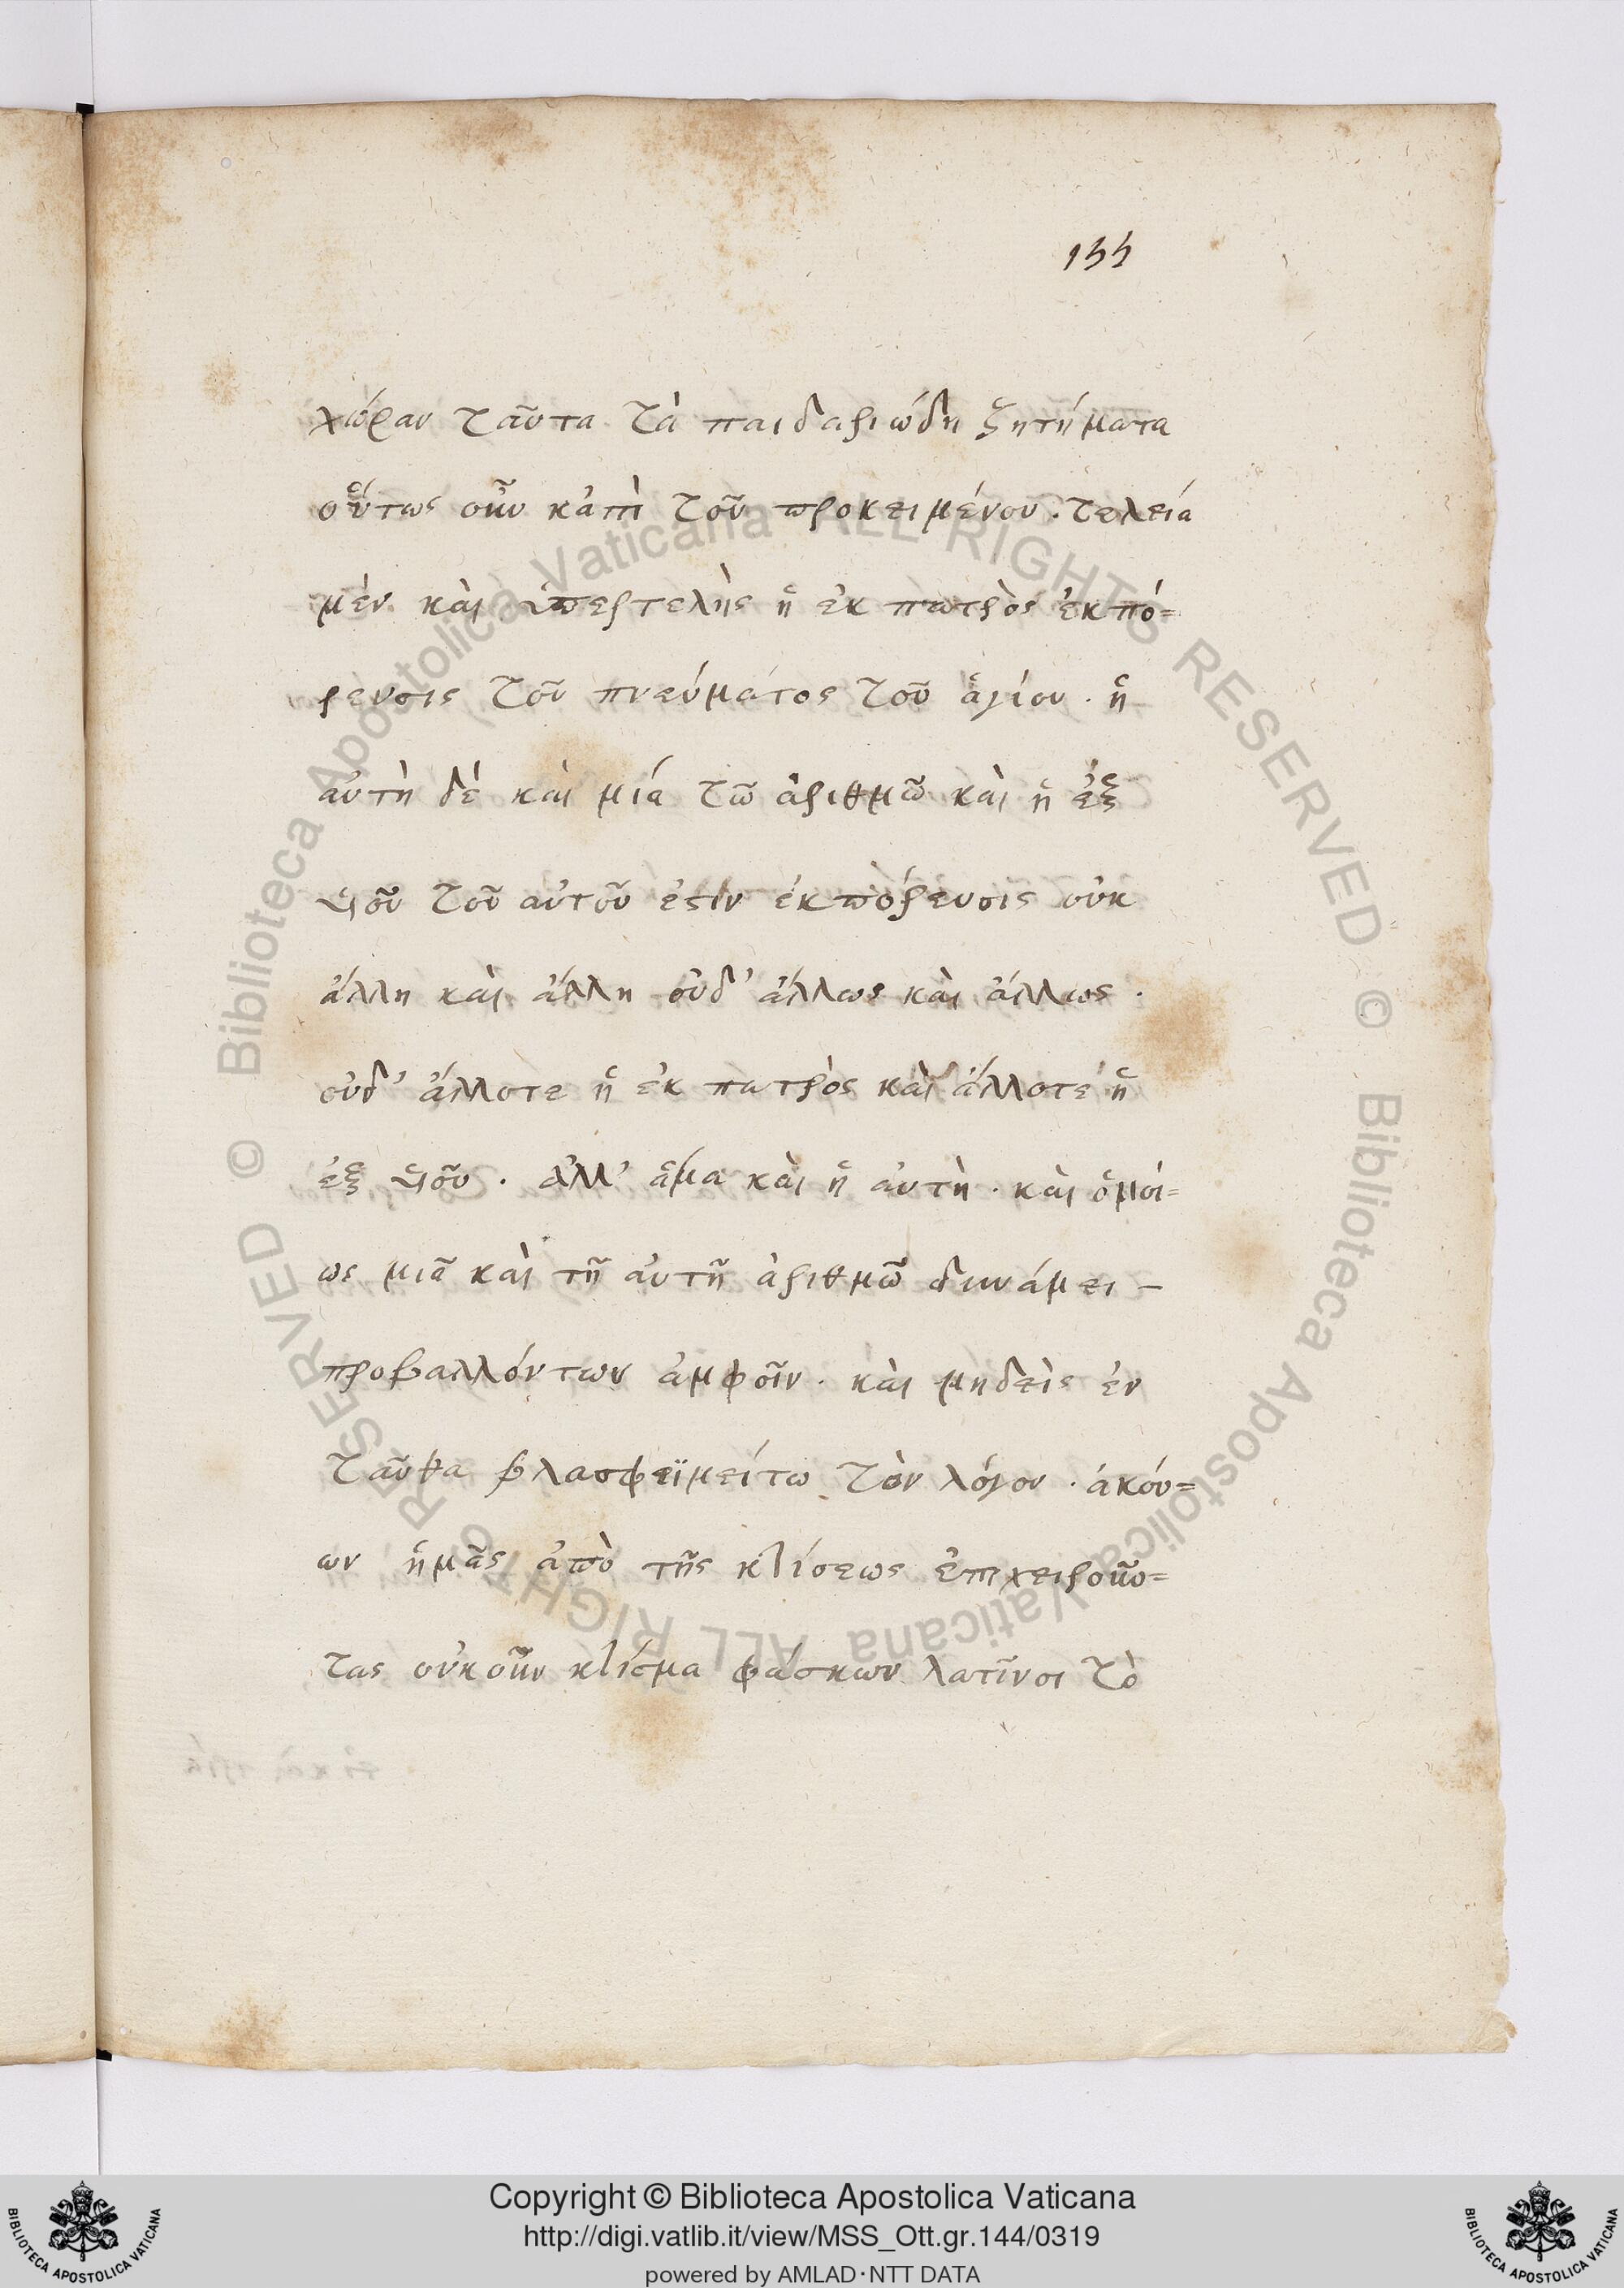 155
χώραν ταῦτα τὰ παιδαριώδη ζητήματα
οὕτως οὖν κἀπὶ τοῦ προκειμένου · τελεία
μὲν καὶ ὑπερτελὴς ἡ ἐκ πατρὸς ἐκπό=
ρευσις τοῦ πνεύματος τοῦ ἁγίου · ἡ
αὐτὴ δέ καὶ μία τῶ ἀριθμῶ καὶ ἡ ἐξ
υἱοῦ τοῦ αὐτοῦ ἐστὶν ἐκπόρευσις οὐκ
ἄλλη καὶ ἄλλη οὐδ' ἄλλως καὶ ἄλλως ·
οὐδ' ἄλλοτε ἡ ἐκ πατρὸς καὶ ἄλλοτε ἡ
ἐξ υἱοῦ · ἀλλ' ἅμα καὶ ἡ αὐτὴ · καὶ ὁμοί=
ως μιᾶ καὶ τῆ αὐτῆ ἀριθμῶ δυνάμει –
προβαλλόντων ἀμφοῖν · καὶ μηδεὶς ἐν
ταῦθα βλασφεϊμείτω τὸν λόγον · ἀκού=
ων ἡμᾶς ἀπὸ τῆς κτίσεως ἐπιχειροῦν=
τας οὐκοῦν κτίσμα φάσκων λατῖνοι τὸ
Biblioteca Apostolica Vaticana ALL RIGHTS RESERVED ©
Biblioteca Apostolica Vaticana ALL RIGHTS RESERVED ©
Copyright © Biblioteca Apostolica Vaticana
http://digi.vatlib.it/view/MSS_Ott.gr.144/0319
powered by AMLAD·NTT DATA
BIBLIOTECA APOSTOLICA VATICANA
BIBLIOTECA APOSTOLICA VATICANA